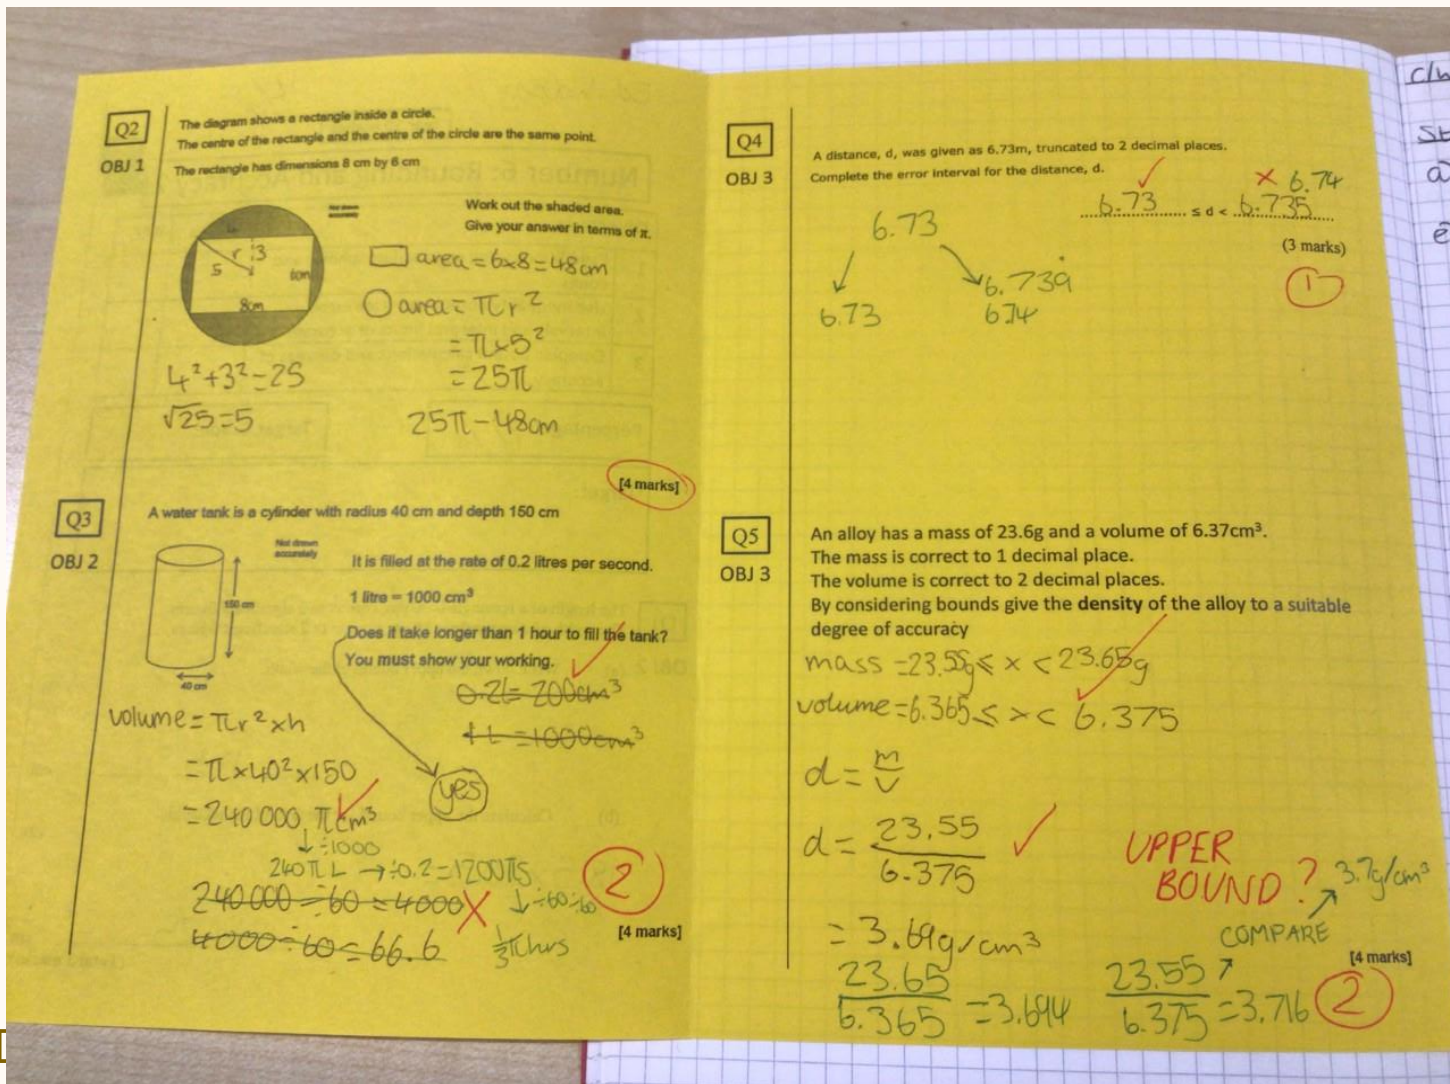 Q2
OBJ 1
The diagram shows a rectangle inside a circle.
The centre of the rectangle and the centre of the circle are the same point.
The rectangle has dimensions 8 cm by 6 cm
Not drawn
accurately
Work out the shaded area.
Give your answer in terms of π.
r 3
5
6cm
8cm
area = 6×8 = 48cm
area = πr²
= π×5²
= 25π
4²+3²=25
√25=5
25π-48cm
[4 marks]
Q3
OBJ 2
A water tank is a cylinder with radius 40 cm and depth 150 cm
Not drawn
accurately
It is filled at the rate of 0.2 litres per second.
1 litre = 1000 cm³
150 cm
40 cm
Does it take longer than 1 hour to fill the tank?
You must show your working.
0.2L = 200cm³
1L = 1000cm³
volume = πr²×h
= π×40²×150
= 240000 πcm³
yes
÷1000
240πL → ÷0.2 = 1200πs
240000 ÷60 = 4000
÷60÷60
4000÷60 = 66.6
⅓πhrs
2
[4 marks]
Q4
OBJ 3
A distance, d, was given as 6.73m, truncated to 2 decimal places.
Complete the error interval for the distance, d.
6.74
6.73 ≤ d < 6.735
(3 marks)
1
6.73
6.739̇
6.73
6.74
Q5
OBJ 3
An alloy has a mass of 23.6g and a volume of 6.37cm³.
The mass is correct to 1 decimal place.
The volume is correct to 2 decimal places.
By considering bounds give the density of the alloy to a suitable
degree of accuracy
mass = 23.55g ≤ x < 23.65g
volume = 6.365 ≤ x < 6.375
d = m/v
d = 23.55/6.375
= 3.69g/cm³
UPPER
BOUND ?
3.7g/cm³
COMPARE
[4 marks]
23.65/6.365 = 3.694
23.55/6.375 = 3.716
2
c/w